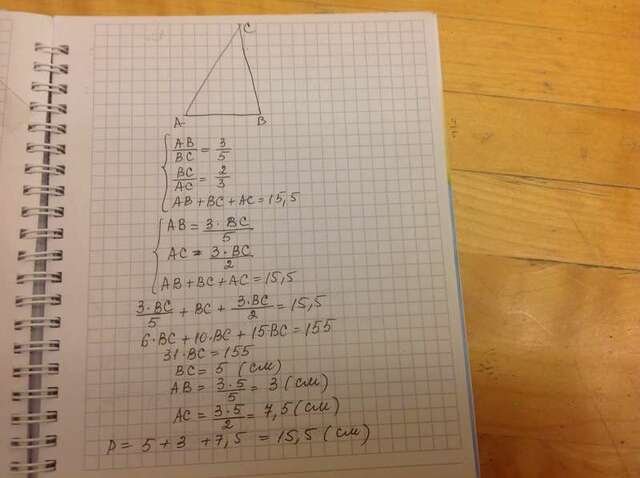 C
A B
AB/BC = 3/5
BC/AC = 2/3
AB + BC + AC = 15,5
AB = 3·BC/5
AC = 3·BC/2
AB + BC + AC = 15,5
3·BC/5 + BC + 3·BC/2 = 15,5
6·BC + 10·BC + 15·BC = 155
31·BC = 155
BC = 5 (см)
AB = 3·5/5 = 3 (см)
AC = 3·5/2 = 7,5 (см)
P = 5 + 3 + 7,5 = 15,5 (см)